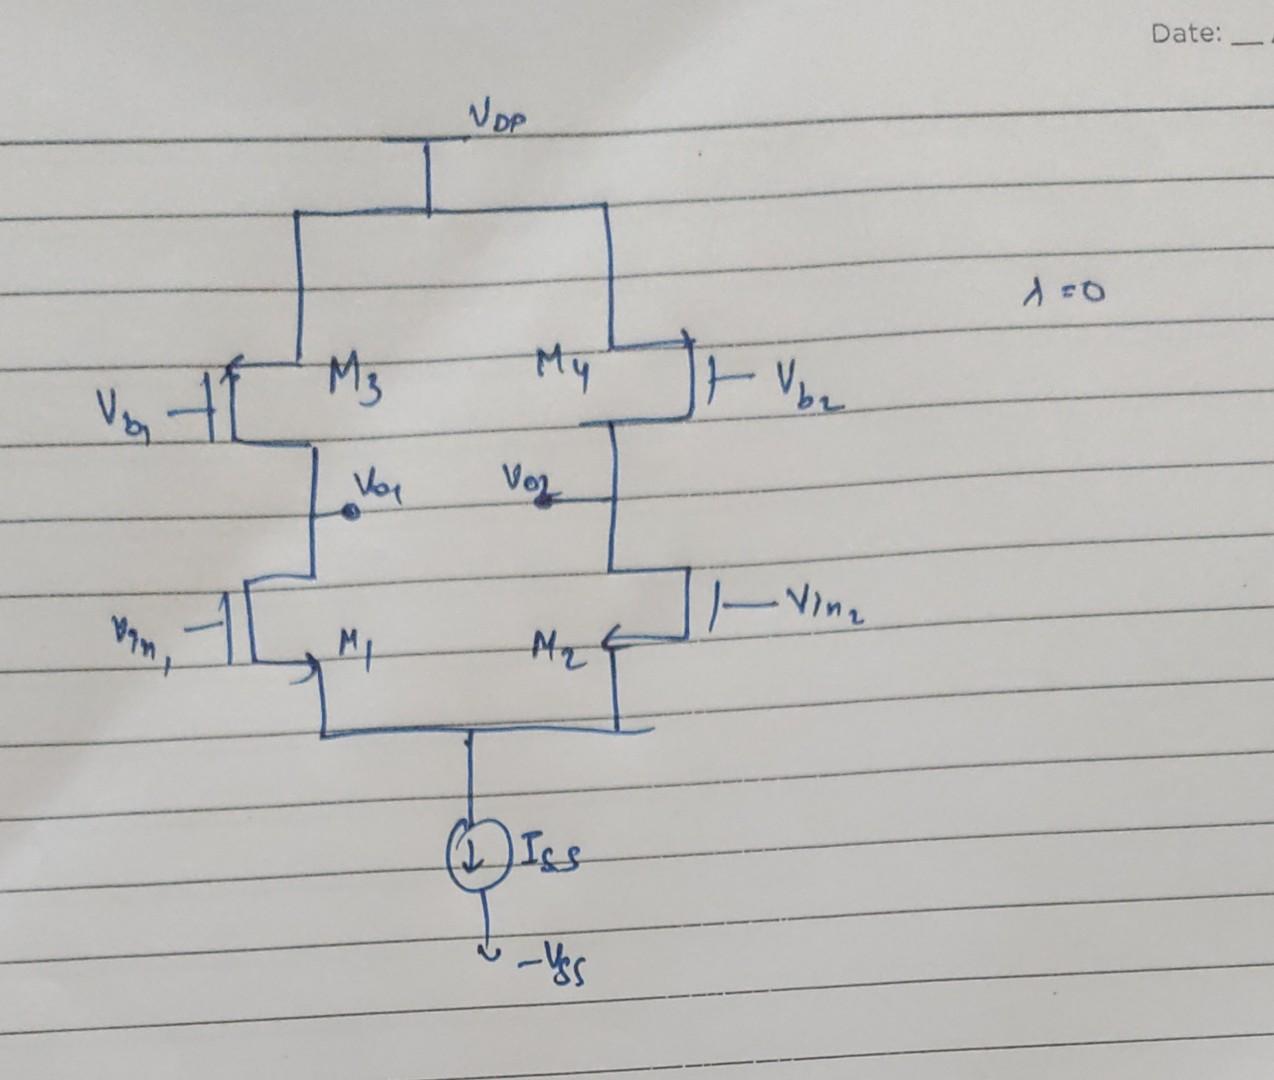 Date: __
VDP
λ = 0
M3
M4
Vb1
Vb2
Vo1
Vo2
Vin1
M1
M2
Vin2
ISS
-VSS